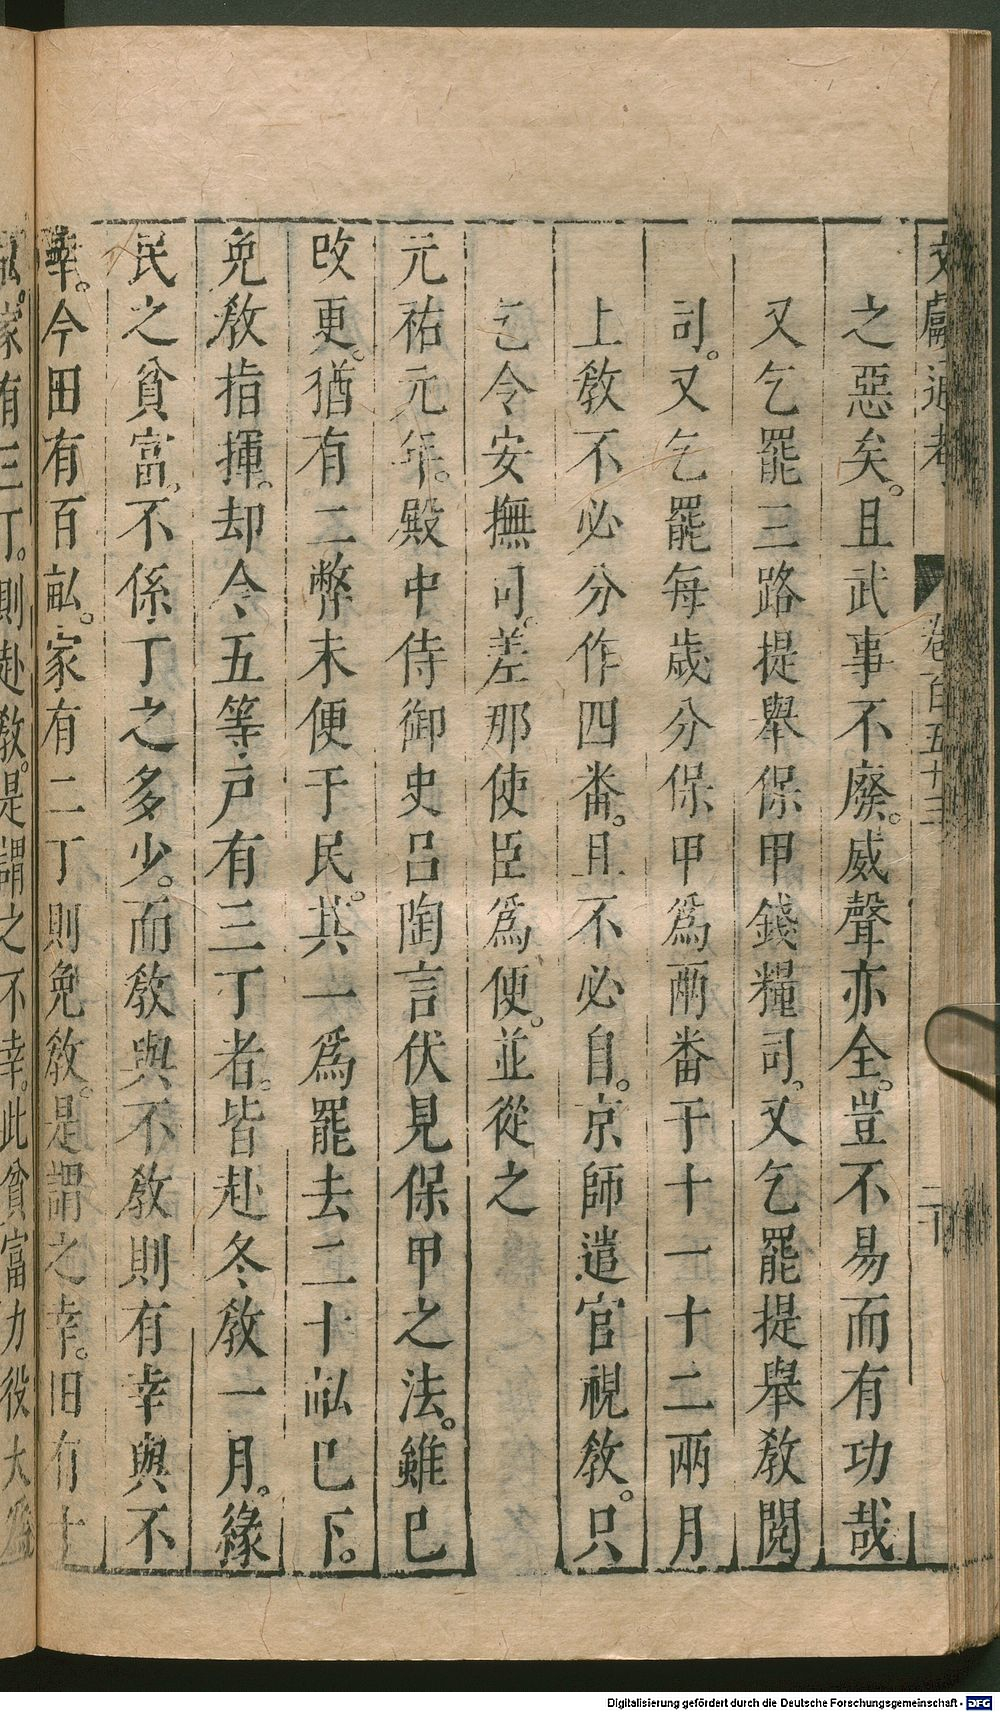 文獻通考 卷百五十三 二十
之惡矣。且武事不廢。威聲亦全。豈不易而有功哉
又乞罷三路提舉保甲錢糧司。又乞罷提舉教閱
司。又乞罷每歲分保甲爲兩番于十一十二兩月
上教不必分作四番。且不必自。京師遣官視教。只
乞令安撫司。差那使臣爲便。並從之
元祐元年。殿中侍御史呂陶言伏見保甲之法。雖巳
改更。猶有二弊未便于民。其一爲罷去二十畝巳下。
免教指揮。却令五等戶有三丁者。皆赴冬教一月。緣
民之貧富。不係丁之多少。而教與不教則有幸與不
幸。今田有百畝。家有二丁則免教。是謂之幸。旧有十
畝。家有三丁。則赴教。是謂之不幸。此貧富力役大
Digitalisierung gefördert durch die Deutsche Forschungsgemeinschaft - DFG